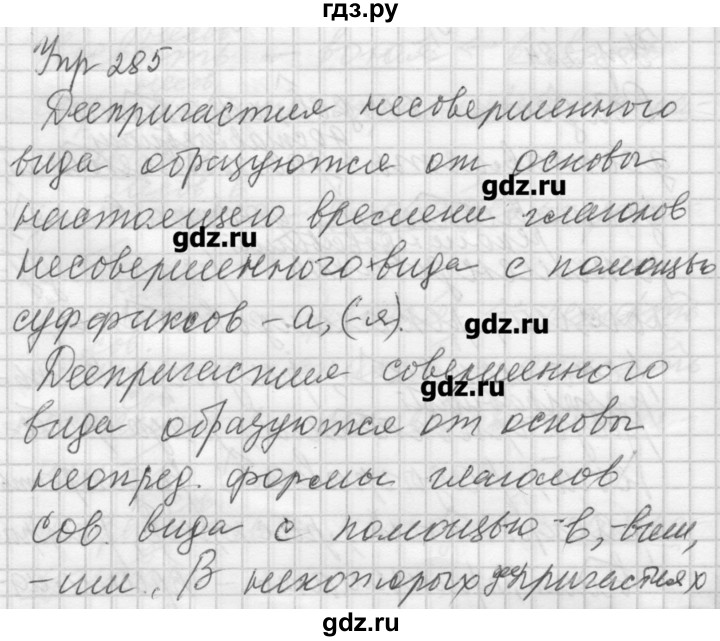 гдз.ру
Упр 285
Деепричастия несовершенного
вида образуются от основы
gdz.ru
настоящего времени глаголов
gdz.ru
несовершенного вида с помощью
суффиксов -а, (-я).
gdz.ru
Деепричастия совершенного
gdz.ru
вида образуются от основы
неопред. формы глаголов
сов. вида с помощью -в, -вши,
-ши. В некоторых деепричастиях
gdz.ru